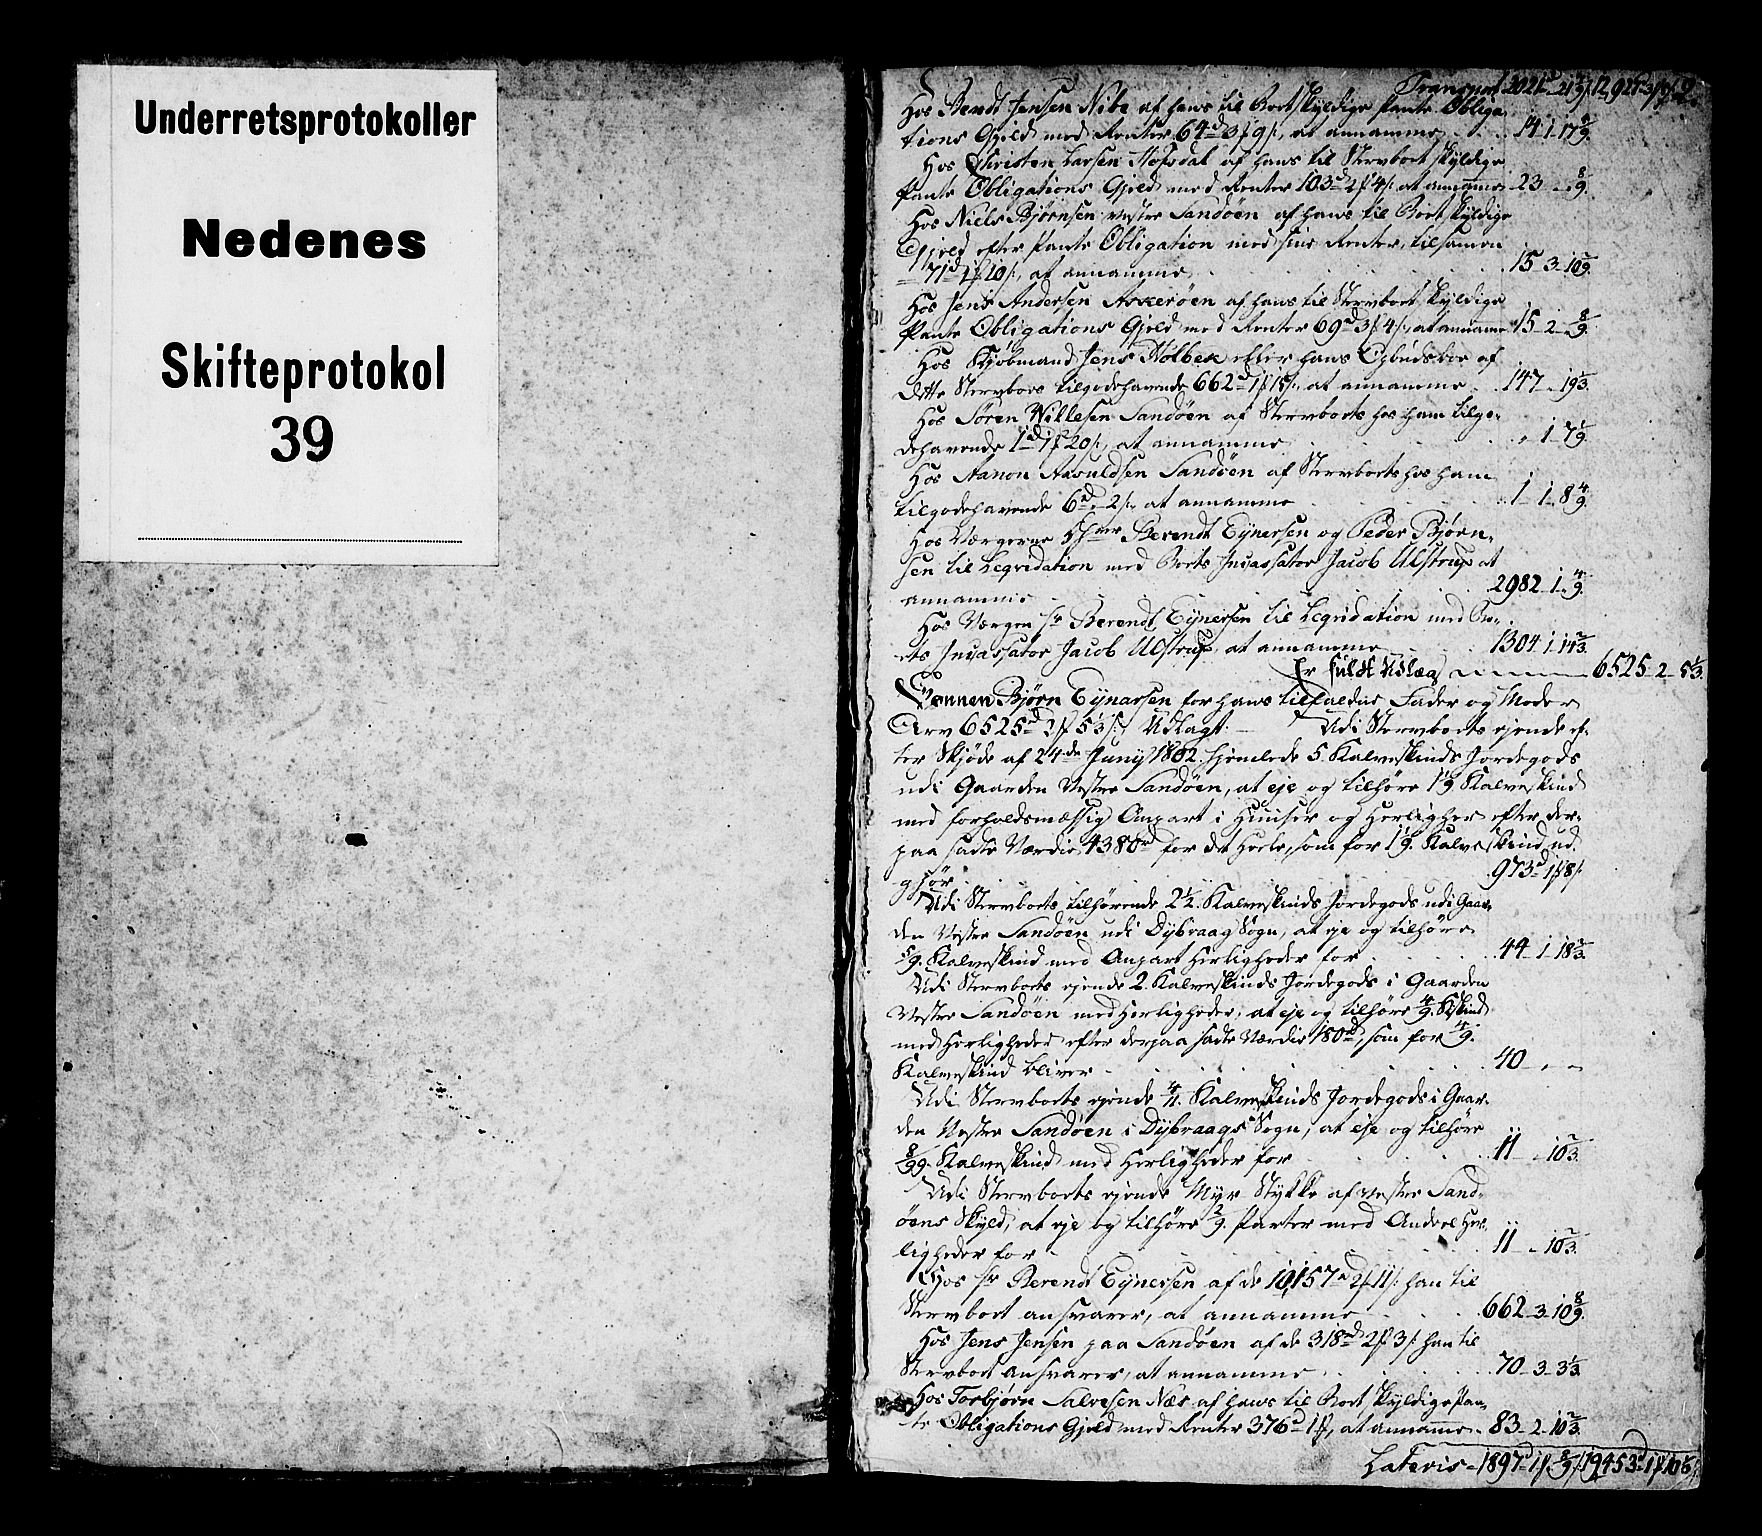 Underretsprotokoller
Nedenes
Skifteprotokol
39
Transport 2021
Hos Berndt Jensen Nibe af hans til Boet skyldige Pante Obliga-
tions Gjeld med Renter 64d 3f 9s, at annamme 14-1-17 8/9
Hos Christen Larsen Hofsdal af hans til Stervboet skyldige
Pante Obligations Gjeld med Renter 103d 2f 4s at annamme 23 - 8/9
Hos Niels Bjørnsen vestre Sandøen af hans til Boet skyldige
Gjeld efter Pante Obligation med sine Renter, tilsamen
71d 1f 10s, at annamme 15-3-10
Hos Jens Andersen Askerøen af hans til Stervboet skyldige
Pante Obligations Gjeld med Renter 69d 3f 4s, at annamme 15-2-8/9
Hos Kjøbmand Jens Holbek eller hans Opbudsboe af
dette Stervboes tilgodehavende 662d 1f 15s, at annamme 147 - 19 1/3
Hos Søren Nillesen Sandøen af Stervboets hos ham tilgo-
dehavende 1d 1f 20s, at annamme 1-7 1/9
Hos Aanon Aasuldsen Sandøen af Stervboets hos ham
tilgodehavende 6d - 2s, at annamme 1-1-8 4/9
Hos Værgerne Hrr Berendt Eynersen og Peder Bjørn-
sen til Legvidation med Boets Incassator Jacob Ulstrup at
annamme 2982-1-4/9
Hos Værgen Sr Berendt Eynersen til Legvidation med Bo-
ets Incassator Jacob Ulstrup, at annamme 1304-1-14 2/3
Er fuldt Udlæg 6525-2-5 1/3
Sønnen Bjørn Eynarsen for hans tilfaldne Fader og Moder
Arv 6525d 2f 5 1/3s Udlagt. Udi Stervboets ejende ef-
ter Skjøde af 24de Junij 1802 hjemlede 5 Kalveskinds Jordegods
udi Gaarden Vestre Sandøen, at eje og tilhøre 1 1/9 Kalveskind
med forholdsmæssig Anpart i Huuser og Herligheder efter der-
paa sadte Værdie 4380rd for det Heele, som for 1 1/9 Kalveskind ud-
gjør 973d 1f 8s
Udi Stervboets tilhørende 2 1/2 Kalveskinds Jordegods udi Gaar-
den Vestre Sandøen udi Dybvaag Sogn, at eje og tilhøre
5/9 Kalveskind med Anpart Herligheder for 44-1-18 2/3
Udi Stervboets ejende 2 Kalveskinds Jordegods i Gaarden
Vestre Sandøen med Herligheder, at eje og tilhøre 4/9 Kskind
med Herligheder efter derpaa sadte Værdie 180rd, som for 4/9
Kalveskind bliver 40 - -
Udi Stervboets ejende 4/11 Kalveskinds Jordegods i Gaar-
den Vestre Sandøen i Dybvaags Sogn, at eje og tilhøre
8/99 Kalveskind med Herligheder for 11 - 10 2/3
Udi Stervboets ejende Myr Stykke af Vestre Sand-
øens Skyld, at eje og tilhøre 2/9 Parter med Andeel Her-
ligheder for 11 - 10 2/3
Hos Sr Berendt Eynersen af de 10,157d 2f 11s han til
Stervboet ansvarer, at annamme 662-3-10 8/9
Hos Jens Jensen paa Sandøen af de 318d 2f 3s han til
Stervboet ansvarer, at annamme 70-3-3 1/3
Hos Torbjørn Salvesen Næs af hans til Boet skyldige Pan-
te Obligations Gjeld med Renter 376d 1f, at annamme 83-2-10 2/3
Lateris 1897d 1f 8/9 19453d 1f 10